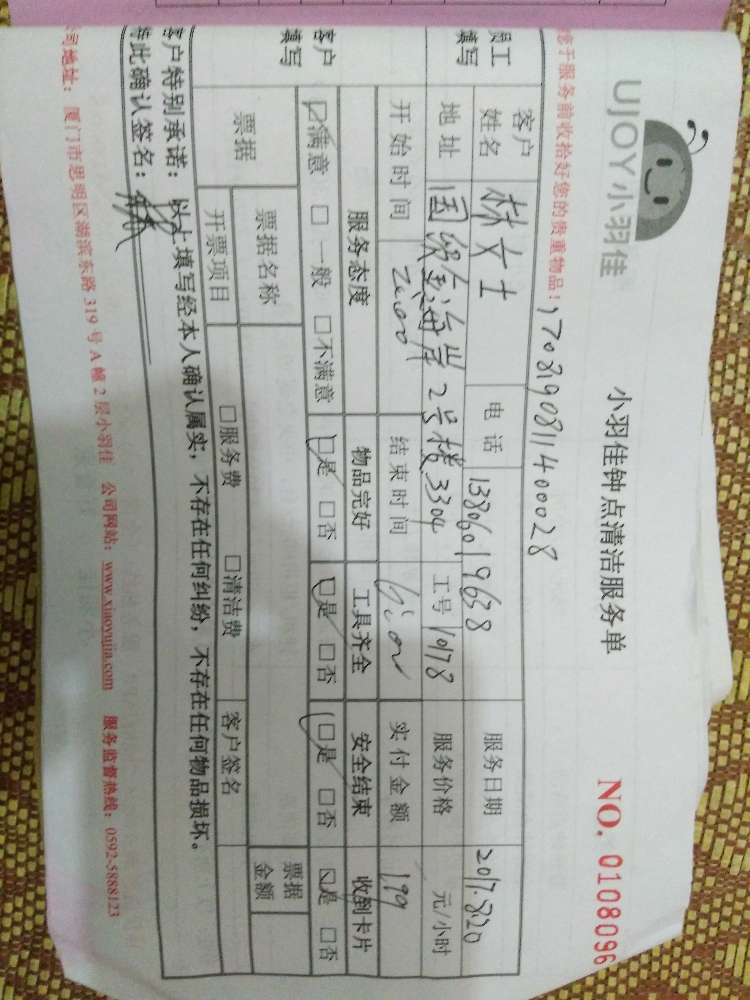 UJOY小羽佳
小羽佳钟点清洁服务单
NO. 0108096
您于服务前收拾好您的贵重物品!
170819081400028
员工填写
客户姓名
林女士
电话
1386019638
服务日期
2017.8.20
地址
国贸金海岸2号楼3304
工号
10178
服务价格
元/小时
开始时间
结束时间
实付金额
199
客户填写
服务态度
物品完好
工具齐全
安全结束
收到卡片
☑满意 □一般 □不满意
☑是 □否
☑是 □否
☑是 □否
☑是 □否
票据
票据名称
□服务费 □清洁费
票据金额
开票项目
客户签名
客户特别承诺:以上填写经本人确认属实,不存在任何纠纷,不存在任何物品损坏。
特此确认签名:
公司地址:厦门市思明区湖滨东路319号A幢2层小羽佳 公司网站:www.xiaoyujia.com 服务监督热线:0592-5888123